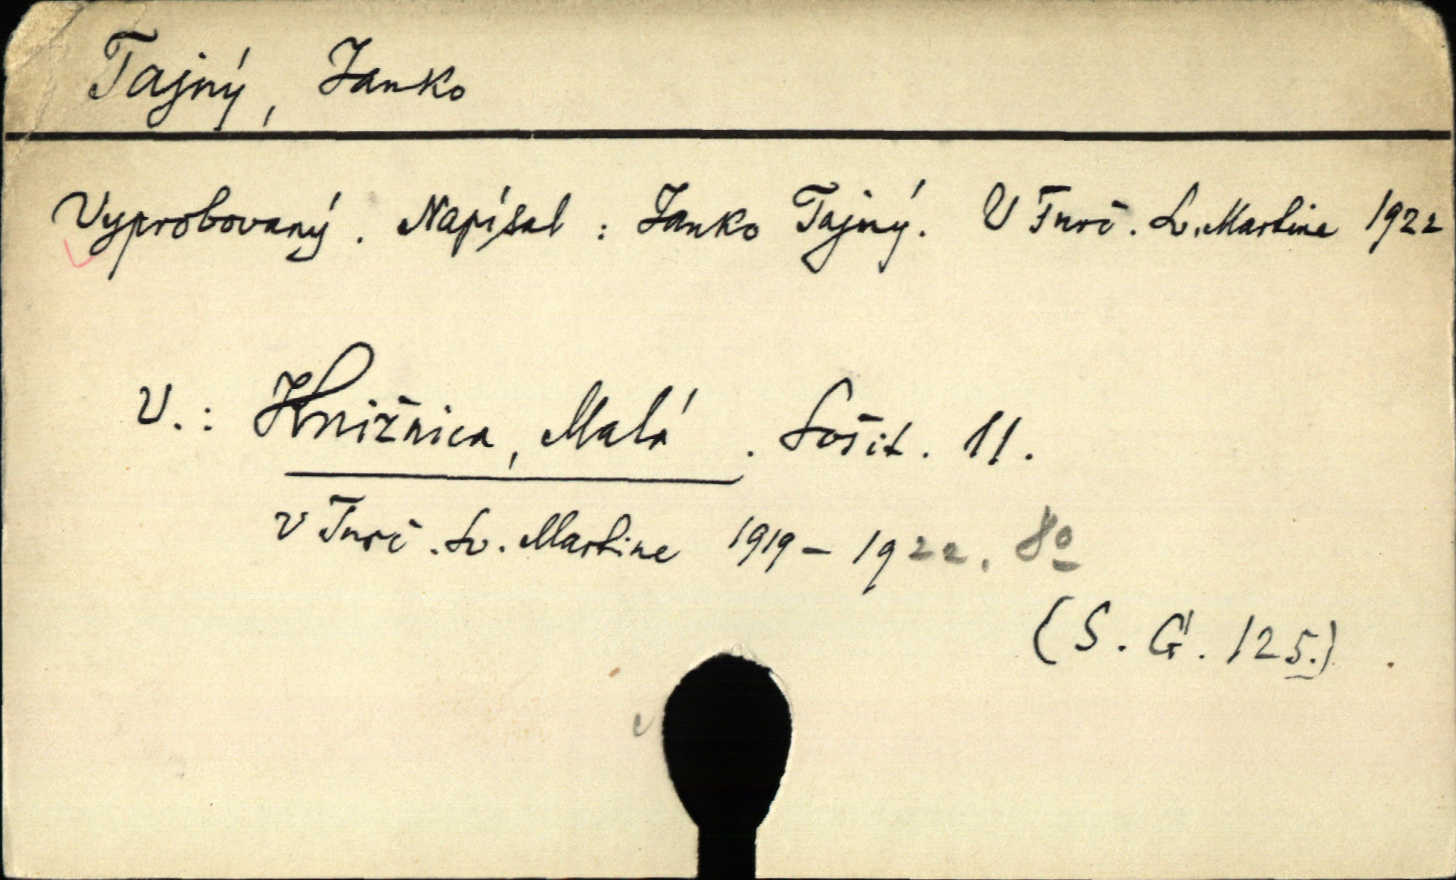 Tajný, Janko
Vyprobovaný. Napísal: Janko Tajný. V Turč. Sv. Martine 1922
V.: Knižnica, Malá. Sošit. 11.
V Turč. Sv. Martine 1919-1922. 8º
(S. G. 125.).